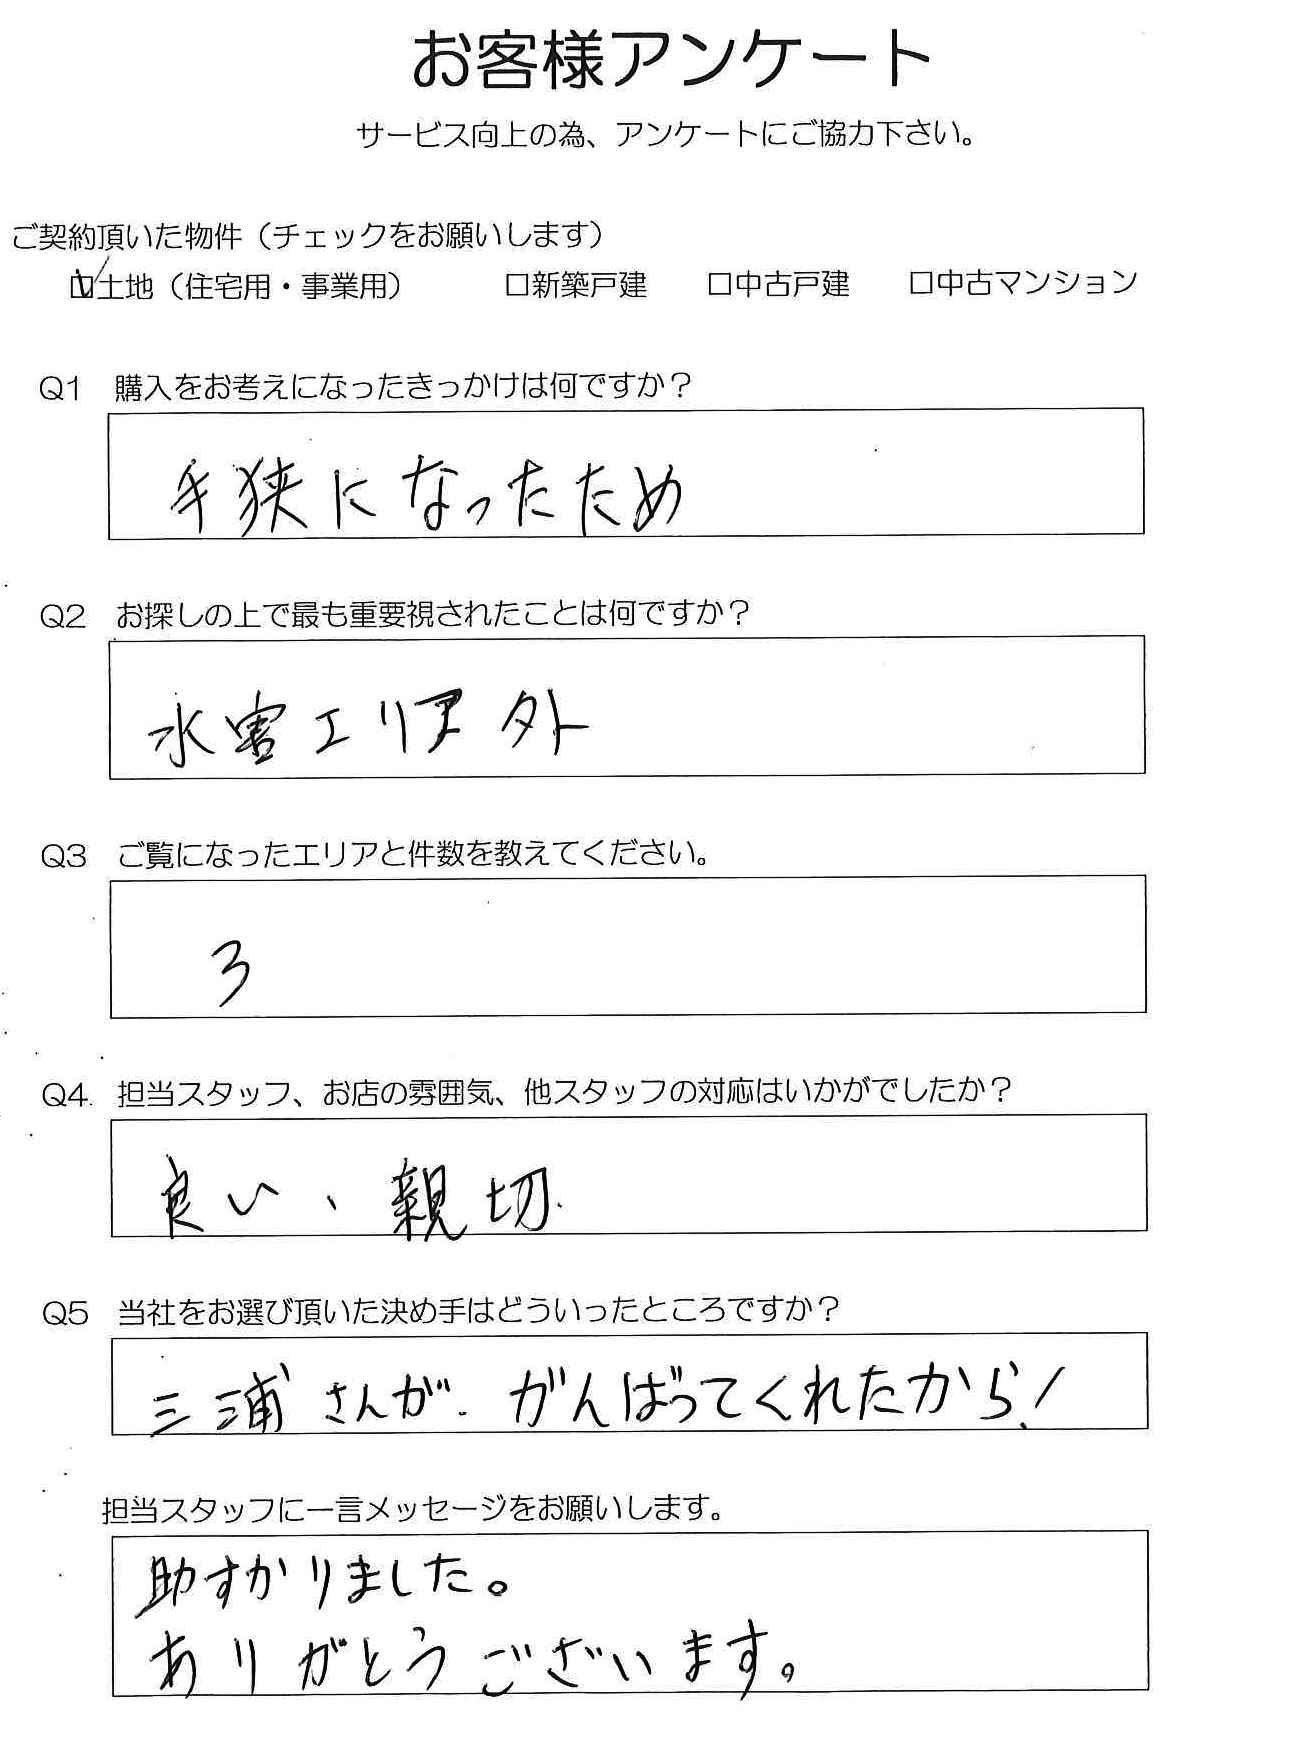 お客様アンケート
サービス向上の為、アンケートにご協力下さい。
ご契約頂いた物件（チェックをお願いします）
☑土地（住宅用・事業用） □新築戸建 □中古戸建 □中古マンション
Q1 購入をお考えになったきっかけは何ですか？
手狭になったため
Q2 お探しの上で最も重要視されたことは何ですか？
水害エリア外
Q3 ご覧になったエリアと件数を教えてください。
3
Q4. 担当スタッフ、お店の雰囲気、他スタッフの対応はいかがでしたか？
良い、親切.
Q5 当社をお選び頂いた決め手はどういったところですか？
三浦さんが.がんばってくれたから！
担当スタッフに一言メッセージをお願いします。
助すかりました。
ありがとうございます。